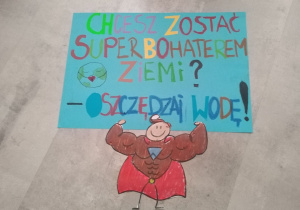 CHCESZ ZOSTAĆ
SUPERBOHATEREM
ZIEMI?
- OSZCZĘDZAJ WODĘ!